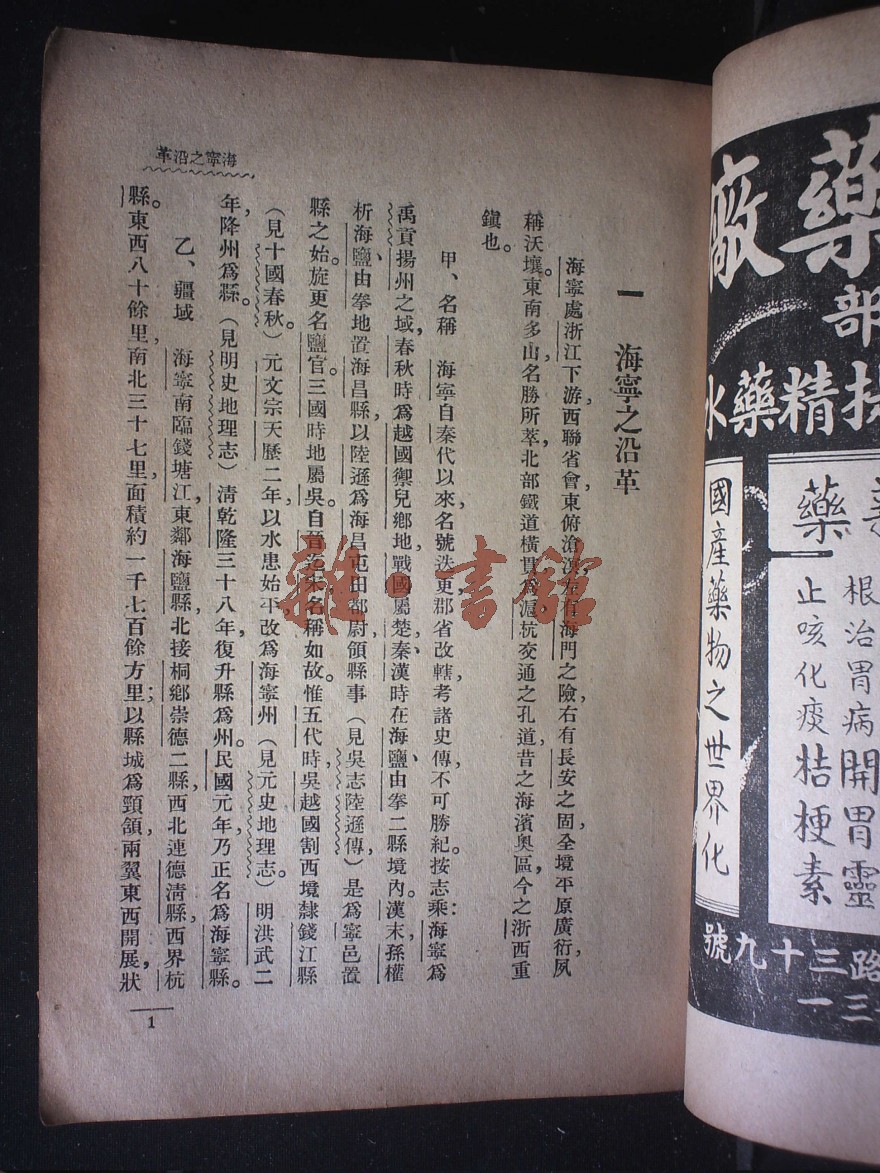 海寧之沿革
一　海寧之沿革
海寧處浙江下游，西聯省會，東俯滄溟，左有海門之險，右有長安之固，全境平原廣衍，夙
稱沃壤。東南多山，名勝所萃，北部鐵道橫貫，爲滬杭交通之孔道，昔之海濱奧區，今之浙西重
鎭也。
甲、名稱　海寧自秦代以來，名號迭更，郡省改轄，考諸史傳，不可勝紀。按志乘：海寧爲
禹貢揚州之域，春秋時爲越國禦兒鄉地，戰國屬楚、秦、漢時在海鹽、由拳二縣境內。漢末，孫權
析海鹽、由拳地置海昌縣，以陸遜爲海昌屯田都尉，領縣事（見吳志陸遜傳），是爲寧邑置
縣之始。旋更名鹽官。三國時地屬吳。自晉迄宋，名稱如故。惟五代時，吳越國割西境隸錢江縣
（見十國春秋）。元文宗天歷二年，以水患始平，改爲海寧州（見元史地理志）。明洪武二
年，降州爲縣。（見明史地理志）清乾隆三十八年，復升縣爲州。民國元年，乃正名爲海寧縣。
乙、疆域　海寧南臨錢塘江，東鄰海鹽縣，北接桐鄉崇德二縣，西北連德清縣，西界杭
縣。東西八十餘里，南北三十七里，面積約一千七百餘方里；以縣城爲頸領，兩翼東西開展，狀
1
藥廠
部
精藥水
藥
根治胃病開胃靈
止咳化痰桔梗素
國產藥物之世界化
路三十九號
三一
雜·書館